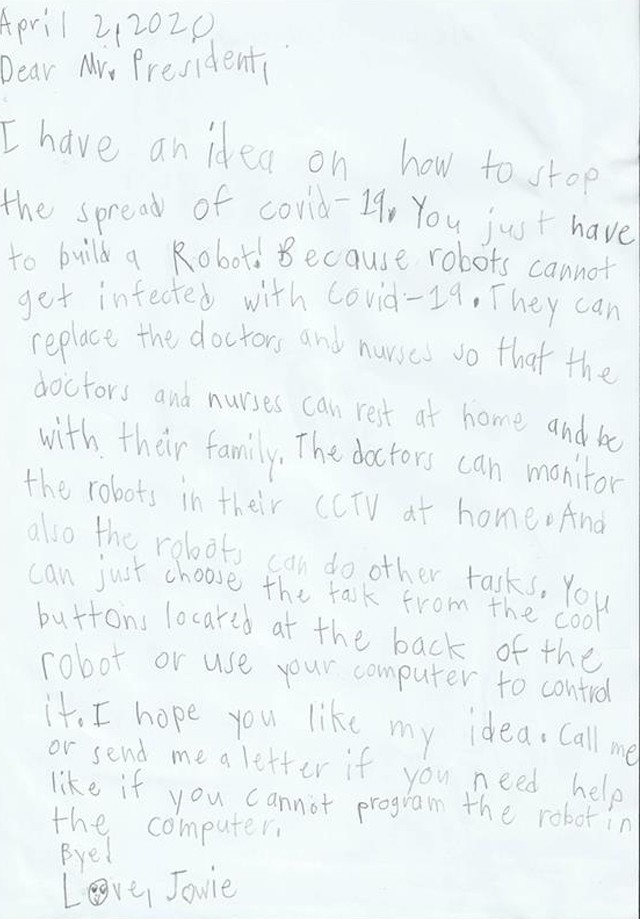 April 2, 2020
Dear Mr. President,
I have an idea on how to stop
the spread of covid-19. You just have
to build a Robot! Because robots cannot
get infected with Covid-19. They can
replace the doctors and nurses so that the
doctors and nurses can rest at home and be
with their family. The doctors can monitor
the robots in their CCTV at home. And
also the robots can do other tasks. You
can just choose the task from the cool
buttons located at the back of the
robot or use your computer to control
it. I hope you like my idea. Call me
or send me a letter if you need help
like if you cannot program the robot in
the computer.
Bye!
Love, Jowie